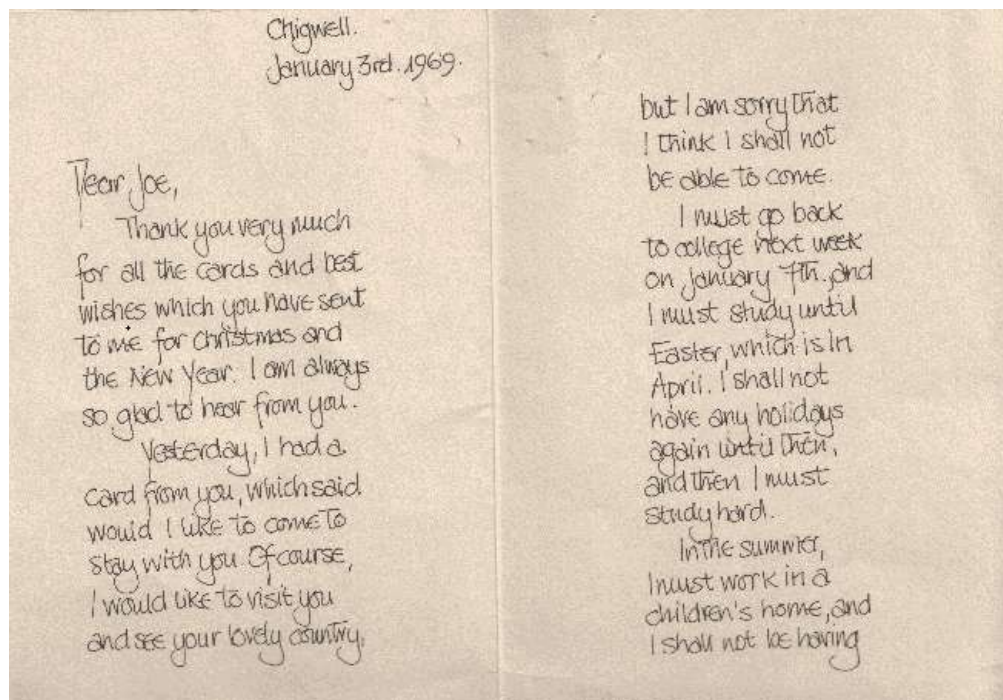 Chigwell.
January 3rd. 1969.
Dear Joe,
Thank you very much
for all the cards and best
wishes which you have sent
to me for Christmas and
the New Year. I am always
so glad to hear from you.
Yesterday, I had a
card from you, which said
would I like to come to
stay with you. Of course,
I would like to visit you
and see your lovely country,
but I am sorry that
I think I shall not
be able to come.
I must go back
to college next week
on January 7th. and
I must study until
Easter, which is in
April. I shall not
have any holidays
again until then,
and then I must
study hard.
In the summer,
I must work in a
children's home, and
I shall not be having